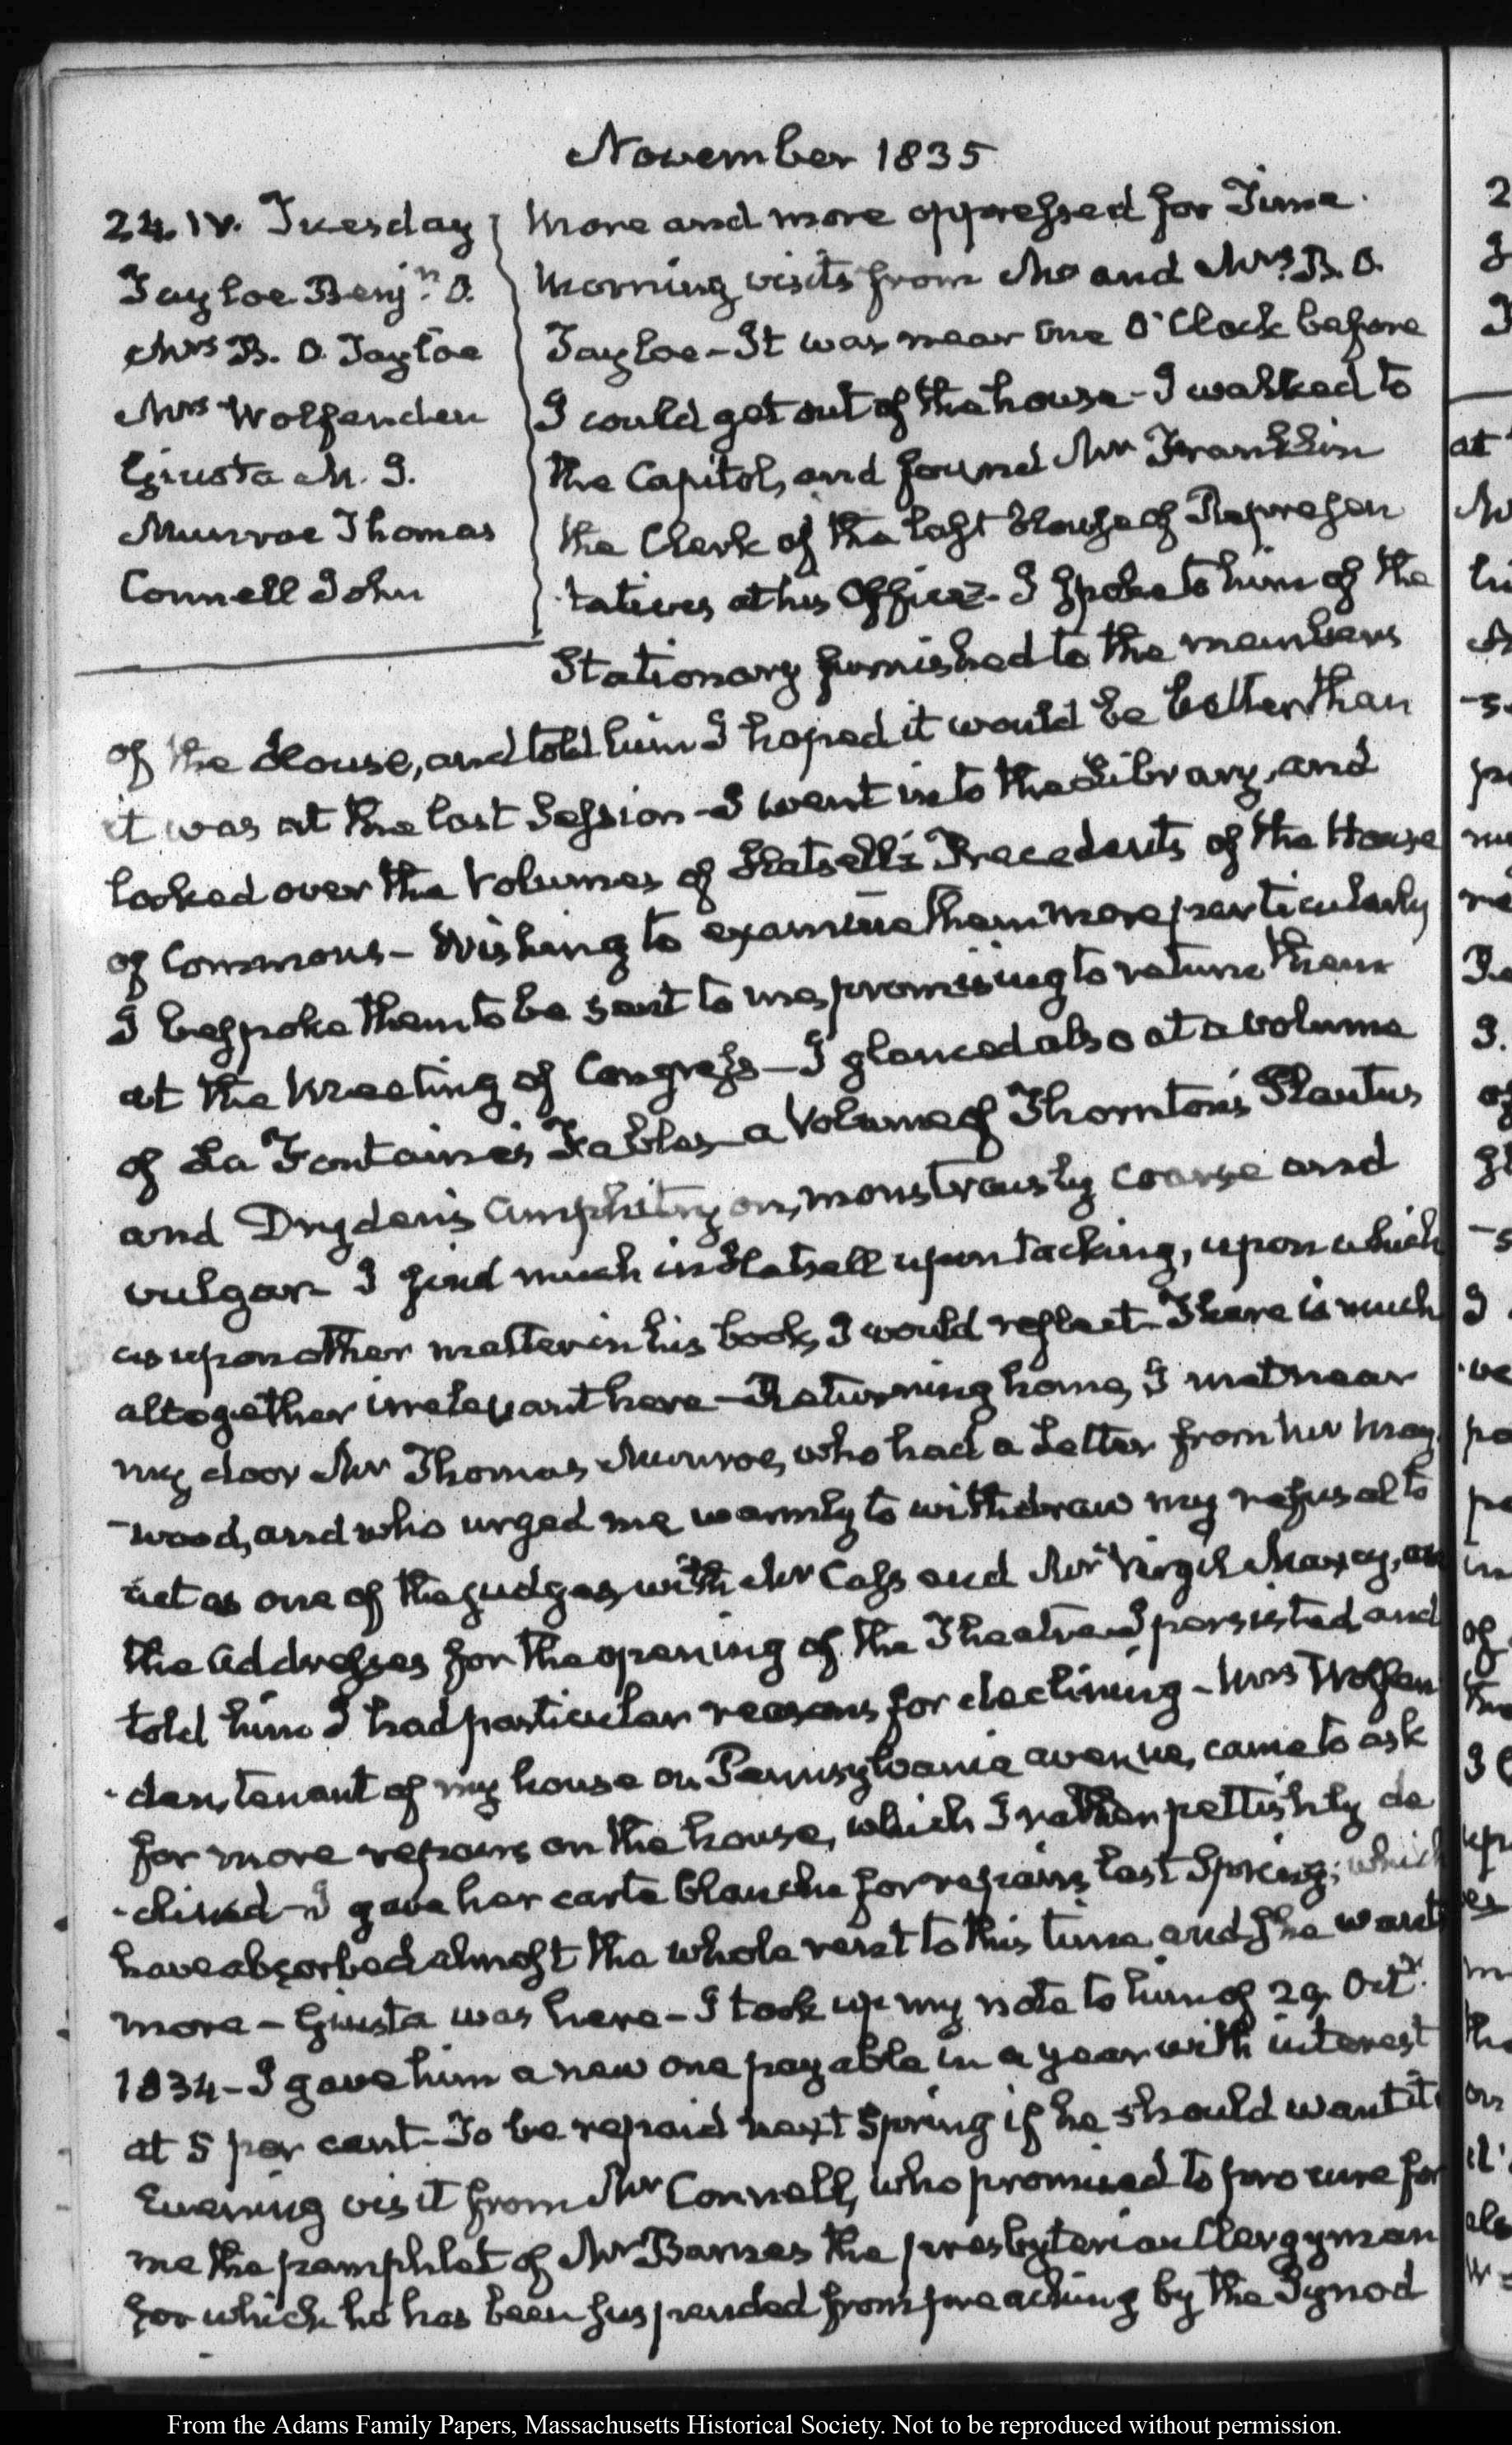 November 1835
24. IV. Tuesday
Tayloe Benjn. O.
Mrs B. O. Tayloe
Mrs Wolfenden
Giusta M. I.
Munroe Thomas
Connell John
More and more oppressed for Time.
Morning visits from Mr and Mrs. B. O.
Tayloe - It was near One O'Clock before
I could get out of the house - I walked to
the Capitol, and found Mr Franklin
the Clerk of the last House of Represen
tatives at his Office - I spoke to him of the
Stationary furnished to the members
of the House, and told him I hoped it would be better than
it was at the last Session - I went into the Library, and
looked over the Volumes of Hatsell's Precedents of the House
of Commons - Wishing to examine them more particularly
I bespoke them to be sent to me, promising to return them
at the Meeting of Congress - I glanced also at a volume
of La Fontaine's Fables - a Volume of Thornton's Plautus
and Dryden's Amphitryon, monstrously coarse and
vulgar - I find much in Hatsell upon tacking, upon which
as upon other matter in his book, I would reflect - There is much
altogether irrelevant here - Returning home, I met near
my door Mr Thomas Munroe, who had a Letter from Mr May
-wood, and who urged me warmly to withdraw my refusal to
act as one of the judges with Mr Cass and Mr Virgil Maxcy, on
the Addresses for the opening of the Theatre - I persisted and
told him I had particular reasons for declining - Mrs Wolfen
-den, tenant of my house on Pennsylvania avenue, came to ask
for more repairs on the house, which I rather pettishly de
-clined - I gave her carte blanche for repairs last Spring; which
have absorbed almost the whole rent to this time and she wants
more - Giusta was here - I took up my note to him of 29. Octr.
1834 - I gave him a new one payable in a year with interest
at 5 per cent - To be repaid next Spring if he should want it
Evening visit from Mr Connell, who promised to procure for
me the pamphlet of Mr Barnes the presbyterian Clergyman
for which he has been suspended from preaching by the Synod
From the Adams Family Papers, Massachusetts Historical Society. Not to be reproduced without permission.